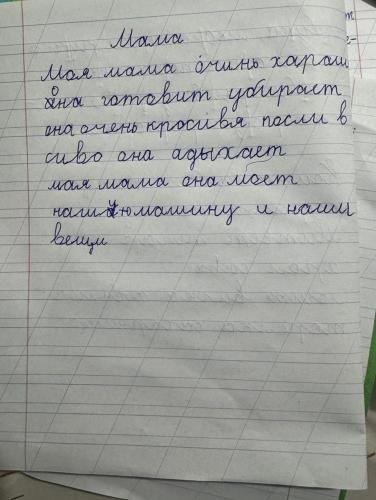 Мама
Моя мама очинь хараш
Она готовит убирает
она очень кросивя посли в
сиво она адыхает
мая мама она моет
нашу юмашину и наши
вещи